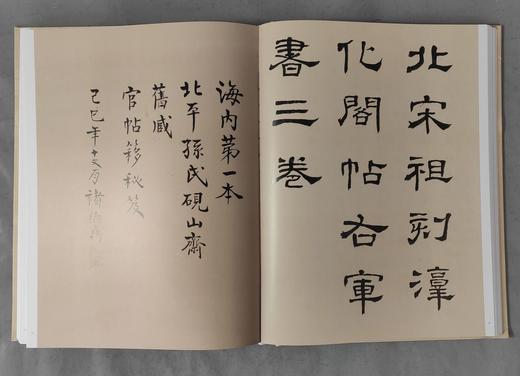 北宋祖刻淳
化閣帖右軍
書三卷
海內第一本
北平孫氏硯山齋
舊藏
官帖簃秘笈
己巳年十二月褚